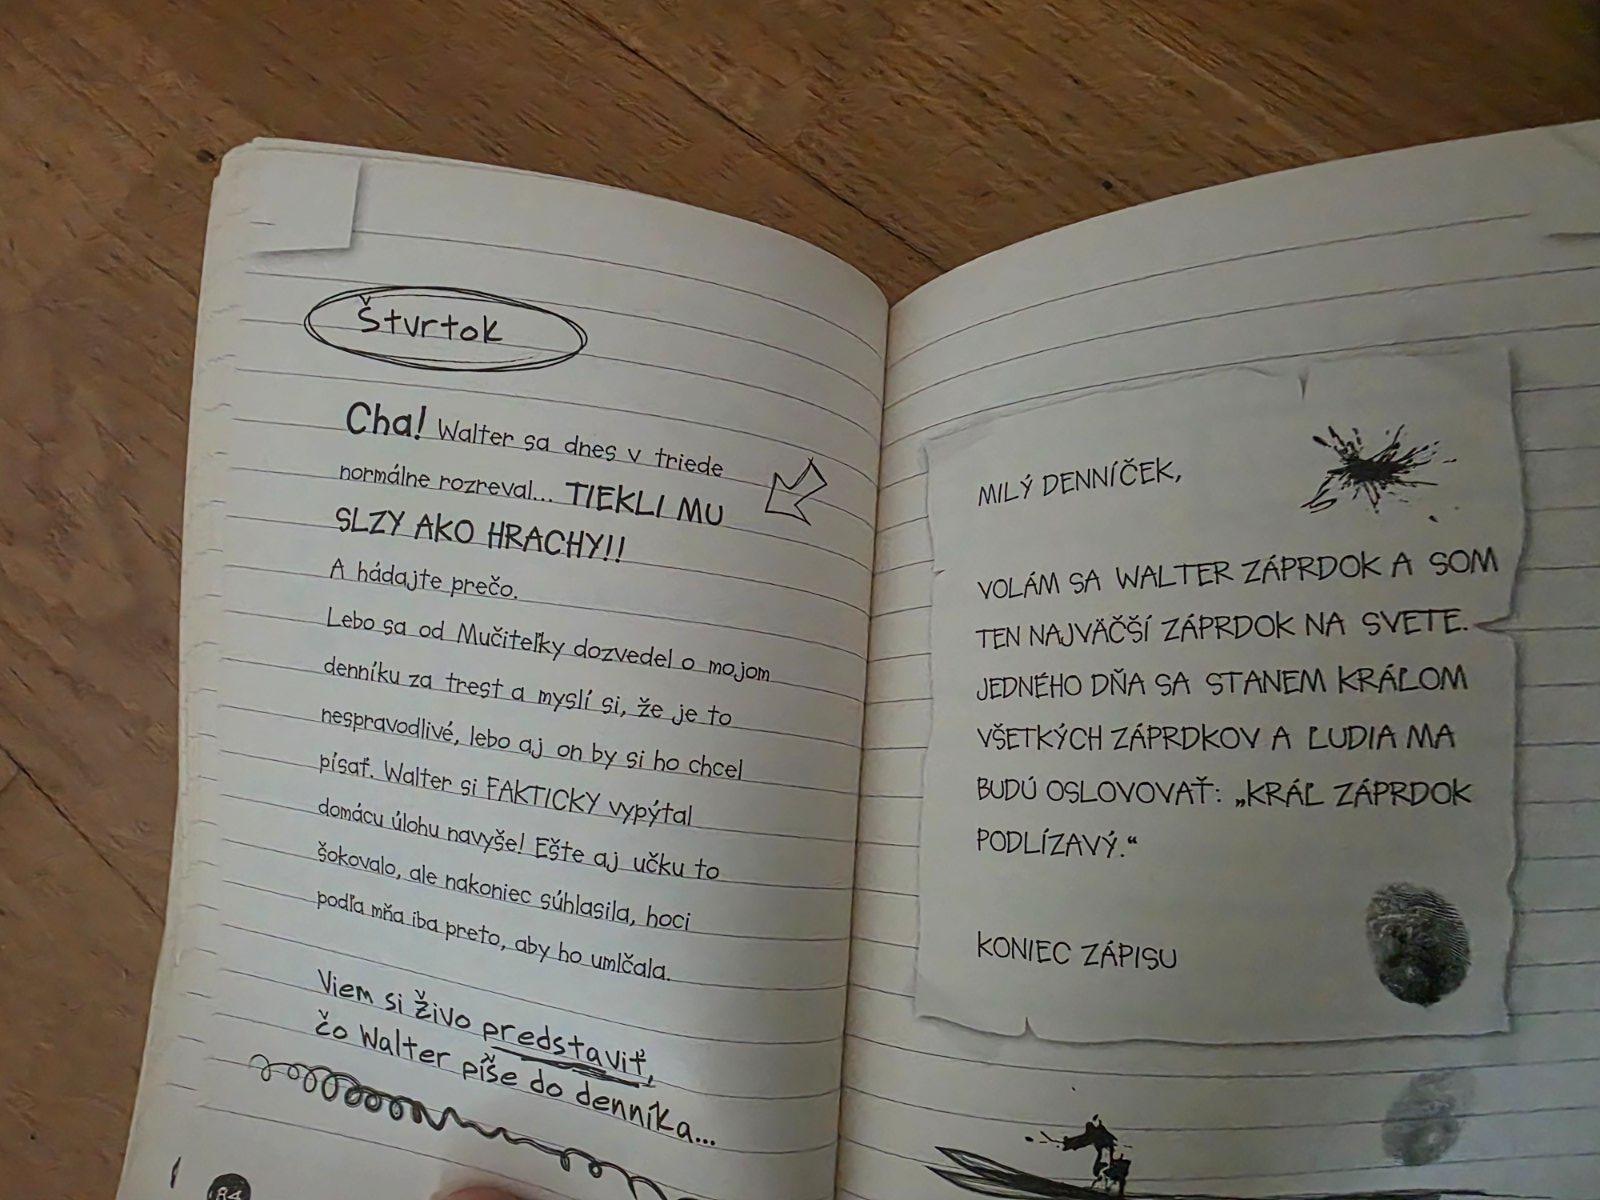 Štvrtok
Cha! Walter sa dnes v triede
normálne rozreval... TIEKLI MU
SLZY AKO HRACHY!!
A hádajte prečo.
Lebo sa od Mučiteľky dozvedel o mojom
denníku za trest a myslí si, že je to
nespravodlivé, lebo aj on by si ho chcel
písať. Walter si FAKTICKY vypýtal
domácu úlohu navyše! Ešte aj učku to
šokovalo, ale nakoniec súhlasila, hoci
podľa mňa iba preto, aby ho umlčala.
Viem si živo predstaviť,
čo Walter píše do denníka...
84
MILÝ DENNÍČEK,
VOLÁM SA WALTER ZÁPRDOK A SOM
TEN NAJVÄČŠÍ ZÁPRDOK NA SVETE.
JEDNÉHO DŇA SA STANEM KRÁĽOM
VŠETKÝCH ZÁPRDKOV A ĽUDIA MA
BUDÚ OSLOVOVAŤ: „KRÁĽ ZÁPRDOK
PODLÍZAVÝ.“
KONIEC ZÁPISU